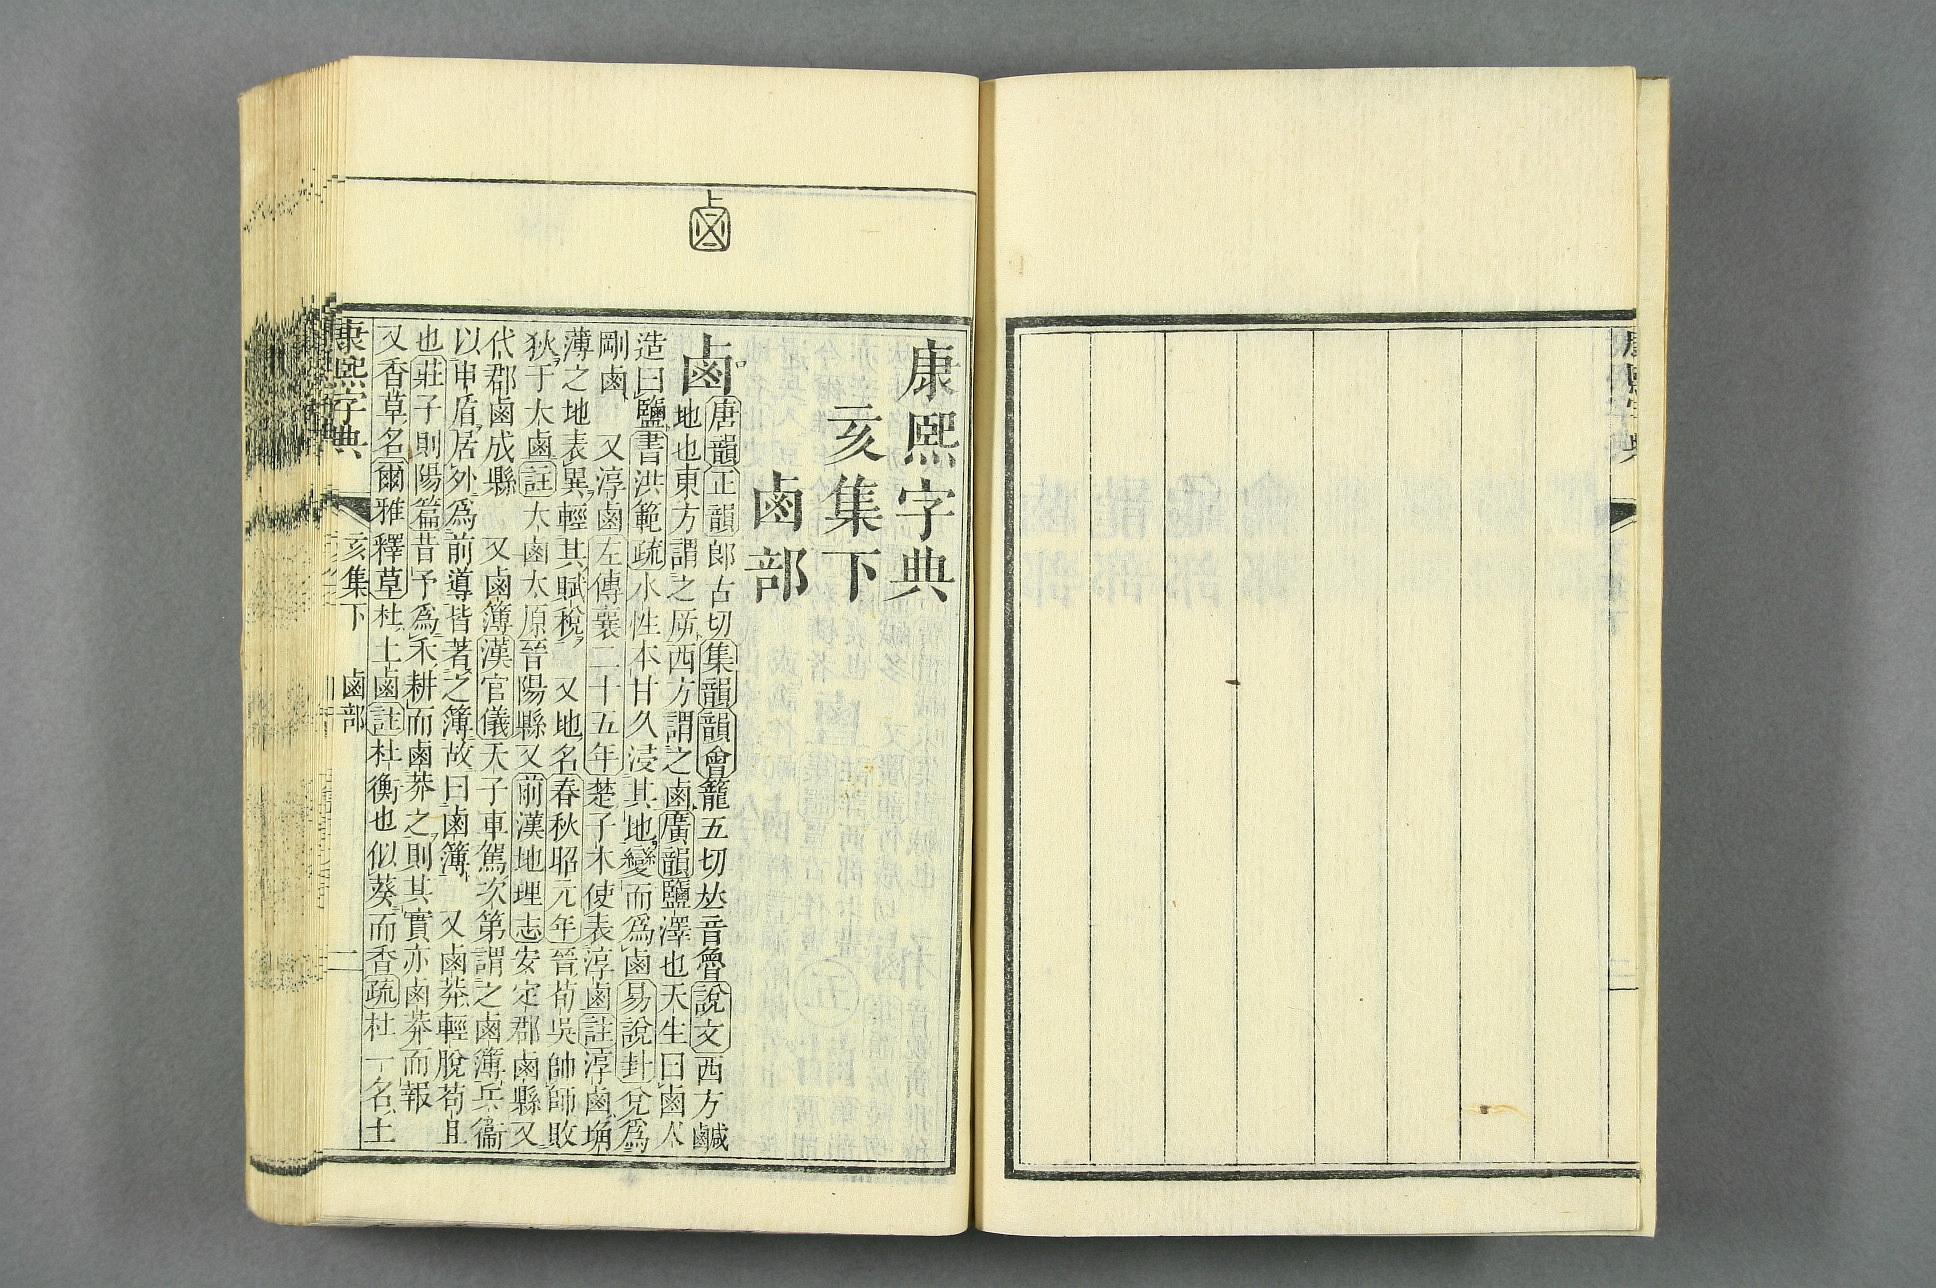 康熙字典
亥集下
鹵部
鹵 唐韻正韻郎古切集韻韻會籠五切𠀤音魯說文西方鹹
地也東方謂之㡿西方謂之鹵廣韻鹽澤也天生曰鹵人
造曰鹽書洪範疏水性本甘久浸其地變而爲鹵易說卦兌爲
剛鹵 又淳鹵左傳襄二十五年楚子木使表淳鹵註淳鹵埆
薄之地表異輕其賦稅 又地名春秋昭元年晉荀吳帥師敗
狄于大鹵註大鹵太原晉陽縣又前漢地理志安定郡鹵縣又
代郡鹵成縣 又鹵簿漢官儀天子車駕次第謂之鹵簿兵衞
以甲盾居外爲前導皆著之簿故曰鹵簿 又鹵莽輕脫苟且
也莊子則陽篇昔予爲禾耕而鹵莽之則其實亦鹵莽而報
又香草名爾雅釋草杜土鹵註杜衡也似葵而香疏杜一名土
康熙字典 亥集下 鹵部 二